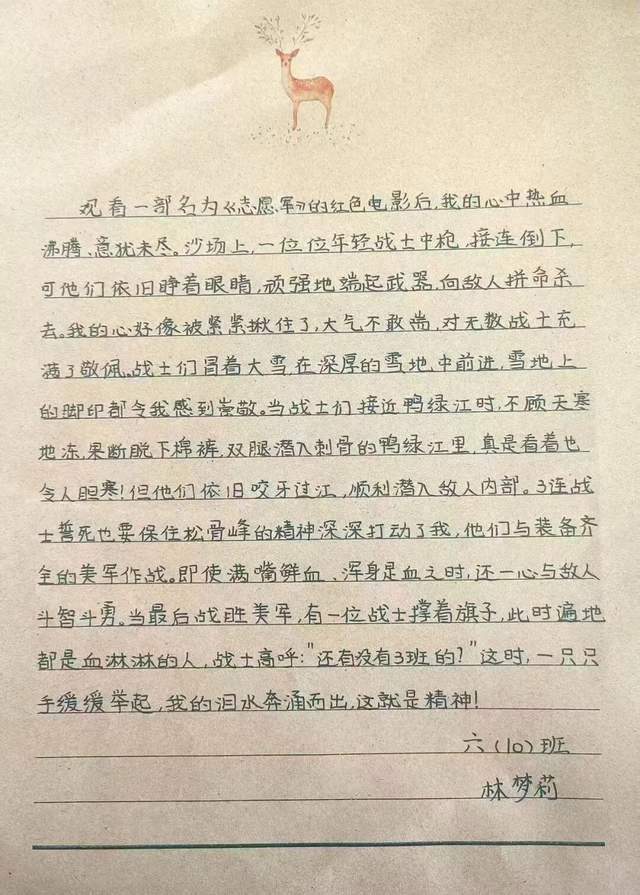 观看一部名为《志愿军》的红色电影后,我的心中热血
沸腾、意犹未尽。沙场上,一位位年轻战士中枪,接连倒下,
可他们依旧睁着眼睛,顽强地端起武器,向敌人拼命杀
去。我的心好像被紧紧揪住了,大气不敢喘,对无数战士充
满了敬佩。战士们冒着大雪,在深厚的雪地中前进,雪地上
的脚印都令我感到崇敬。当战士们接近鸭绿江时,不顾天寒
地冻,果断脱下棉裤,双腿潜入刺骨的鸭绿江里,真是看着也
令人胆寒!但他们依旧咬牙过江,顺利潜入敌人内部。3连战
士誓死也要保住松骨峰的精神深深打动了我,他们与装备齐
全的美军作战。即使满嘴鲜血、浑身是血之时,还一心与敌人
斗智斗勇。当最后战胜美军,有一位战士撑着旗子,此时遍地
都是血淋淋的人,战士高呼:"还有没有3班的?"这时,一只只
手缓缓举起,我的泪水奔涌而出,这就是精神!
六(10)班
林梦莉